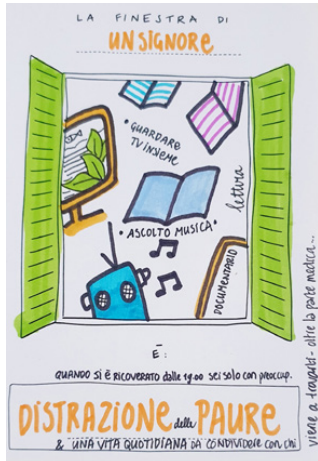 LA FINESTRA DI
UN SIGNORE
• GUARDARE
TV INSIEME
lettura
• ASCOLTO MUSICA •
DOCUMENTARIO
È:
QUANDO SI È RICOVERATO dalle 19.00 sei solo con preoccup.
DISTRAZIONE delle PAURE
& UNA VITA QUOTIDIANA DA CONDIVIDERE con chi
viene a trovarti - oltre la parte medica...